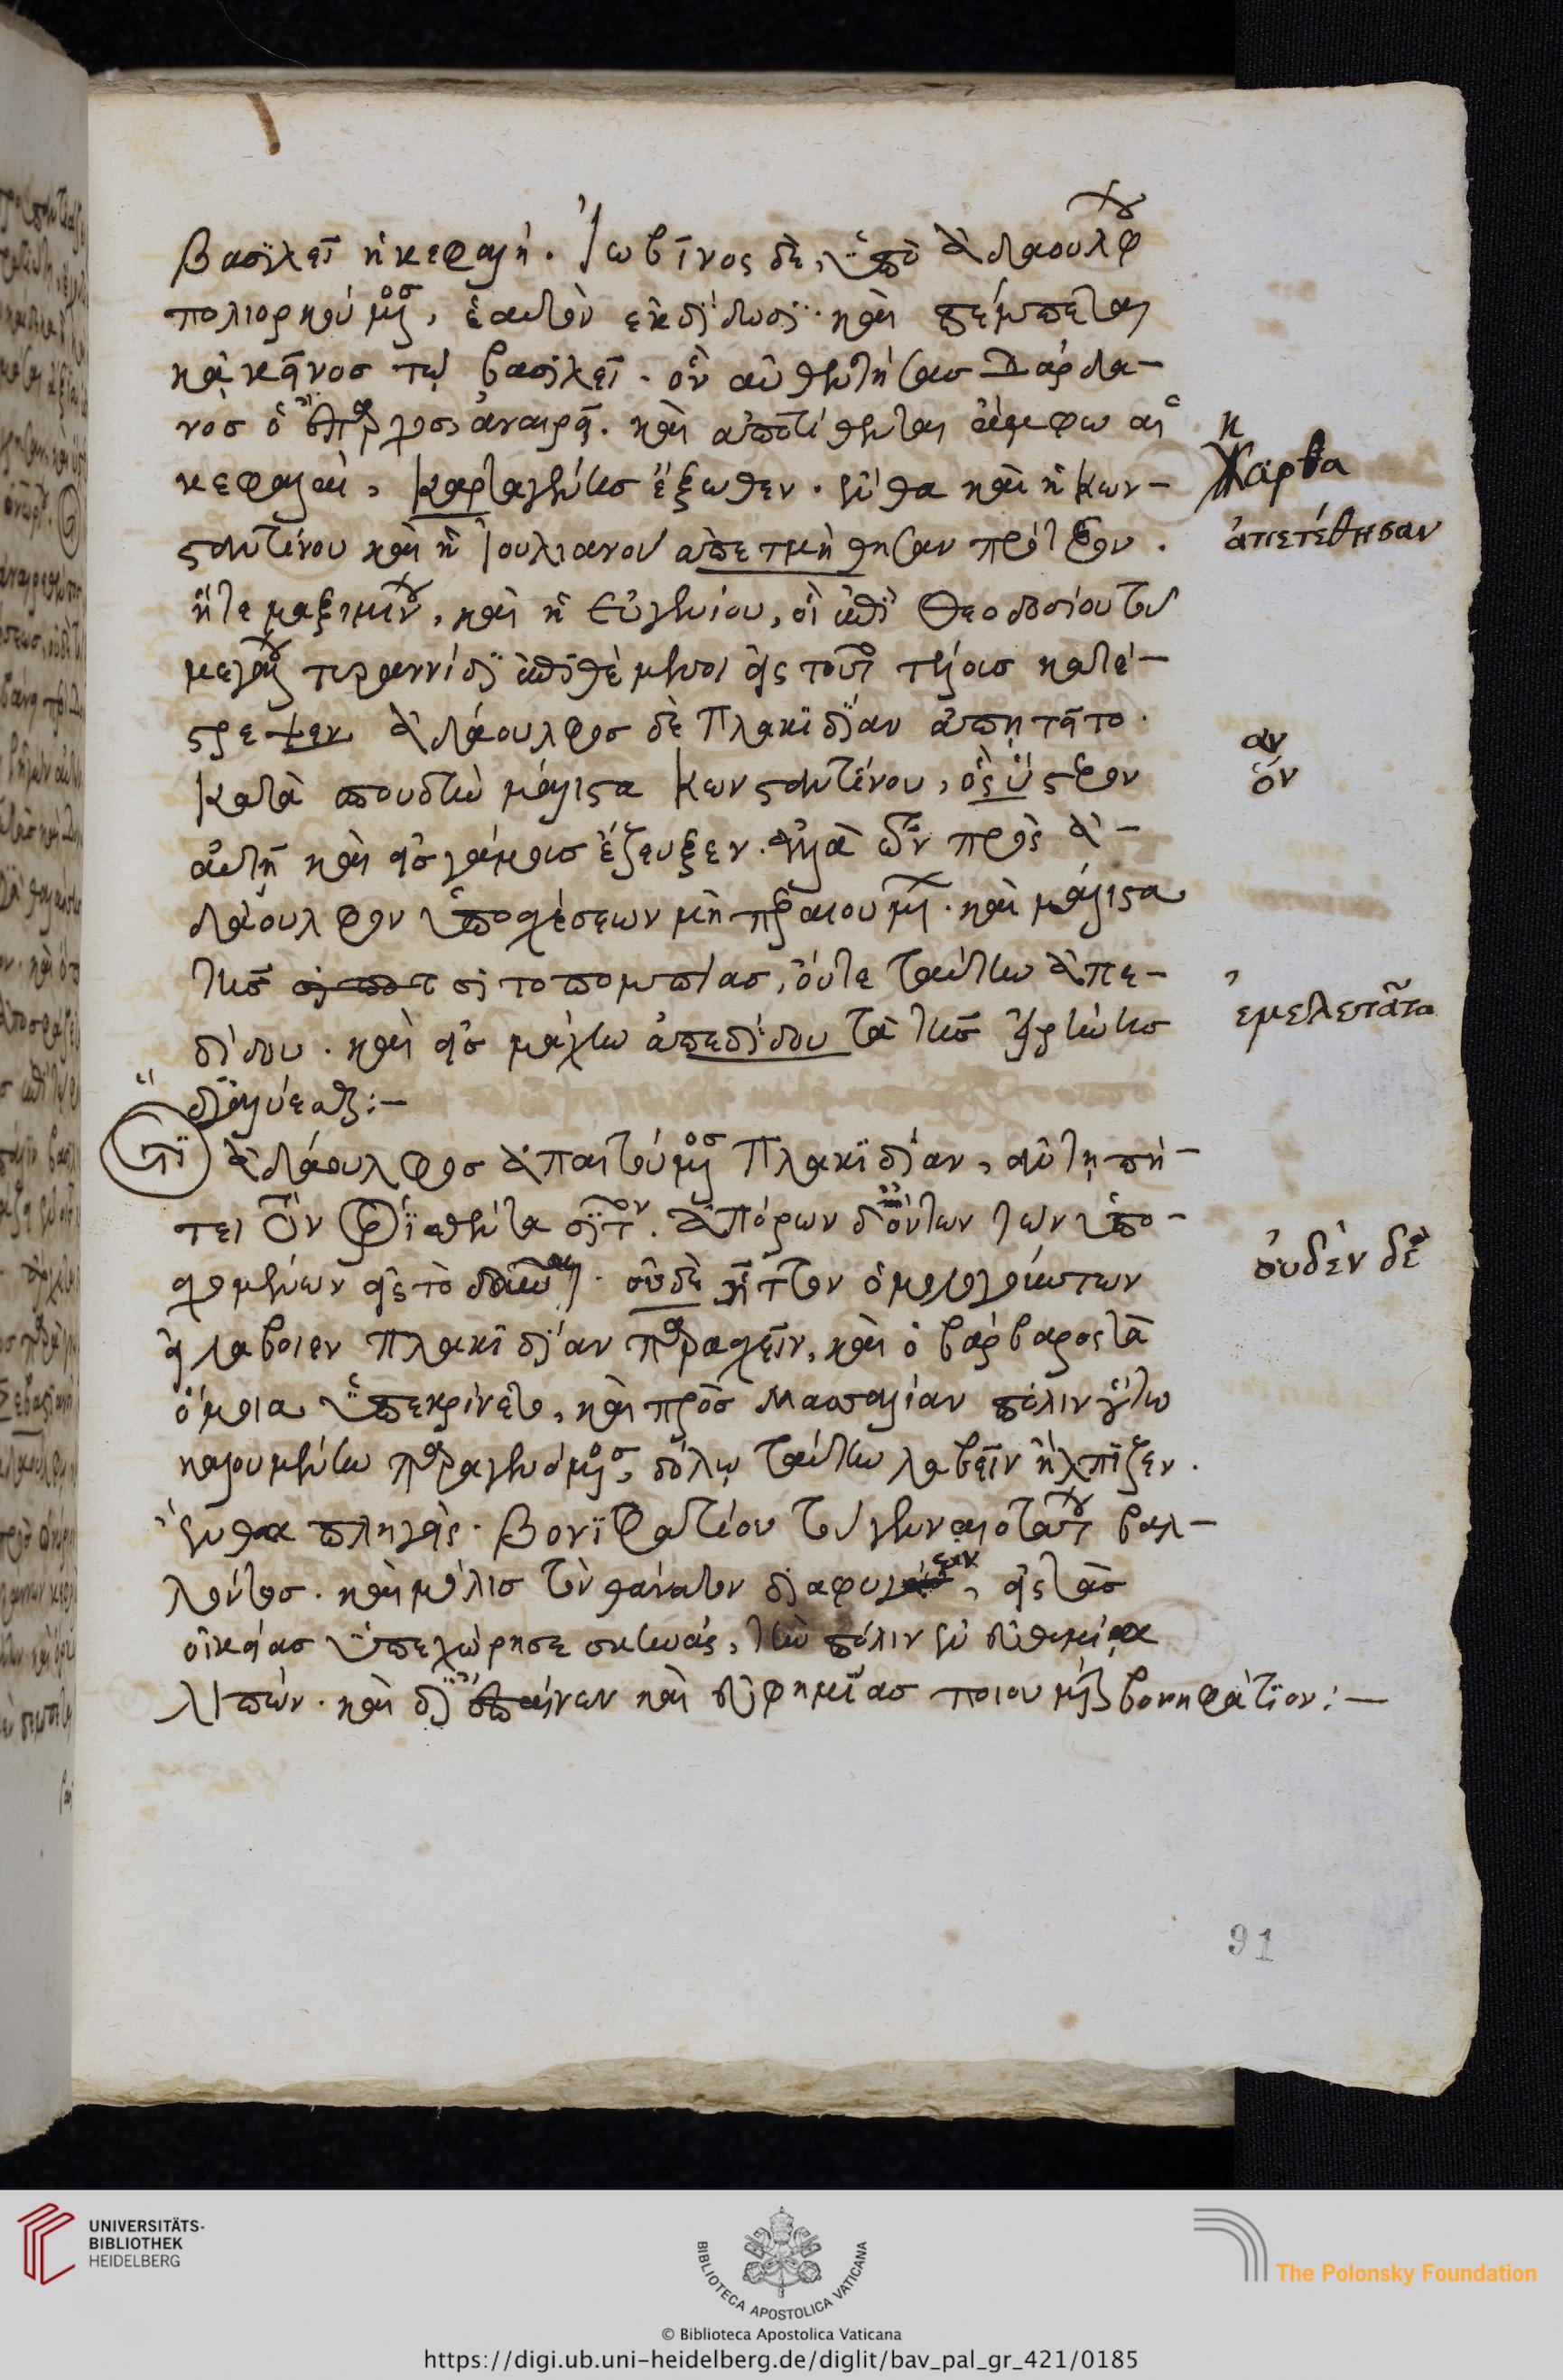 βασιλεῖ ἡ κεφαλή. Ἰωβῖνος δὲ, ὑπὸ Ἀδαούλφου
πολιορκούμενος, ἑαυτὸν ἐκδίδωσι. καὶ πέμπεται
κἀκεῖνος τῷ βασιλεῖ. ὃν αὐθεντήσας Δάρδα-
νος ὁ ἔπαρχος, ἀναιρεῖ. καὶ ἀποτίθενται ἄμφω αἱ
κεφαλαὶ, Καρταγένης ἔξωθεν. ἔνθα καὶ ἡ Κων-
σταντίνου καὶ ἡ Ἰουλιανοῦ ἀπετμήθησαν πρότερον.
ἥτε μαξιμίνου, καὶ ἡ Εὐγενίου, οἳ ἐπὶ Θεοδοσίου τοῦ
μεγάλου τυραννίδι ἐπιθέμενοι εἰς τοῦτο τέλους κατέ-
στρεψεν Ἀδάουλφος δὲ Πλακιδίαν ἀπῃτεῖτο.
Κατὰ σπουδὴν μάλιστα Κωνσταντίνου, ὃς ὕστερον
αὐτῇ καὶ εἰς γάμους ἔζευξεν. ἀλλὰ τῶν πρὸς Ἀ-
δάουλφον ὑποσχέσεων μὴ περαιουμένων. καὶ μάλιστα
τῆς σιτοπομπίας, οὔτε ταύτην ἀπε-
δίδου. καὶ εἰς μάχην ἀπεδίδου τὰ τῆς εἰρήνης
διαλύεσθαι:-
Ὅτι Ἀδάουλφος ἀπαιτούμενος Πλακιδίαν, αὐτῇ πή-
τει τὸν ὁρισθέντα σῖτον. Ἀπόρων δ' ὄντων τῶν ὑπο-
σχομένων εἰς τὸ δοῦναι. οὐδὲ ἧττον ὁμολογούντων
εἰ λάβοιεν Πλακιδίαν παρασχεῖν, καὶ ὁ βάρβαρος τὰ
ὅμοια ὑπεκρίνετο, καὶ πρὸς Μασσαλίαν πόλιν οὕτω
καλουμένην παραγενόμενος, δόλῳ ταύτην λαβεῖν ἤλπιζεν.
ἔνθα πληγεὶς. Βονιφατίου τοῦ γενναιοτάτου βαλ-
λόντος. καὶ μόλις τὸν θάνατον διαφυγὼν, εἰς τὰς
οἰκείας ὑπεχώρησε σκηνάς, τὴν πόλιν ἐν εὐθυμίᾳ
λιπών. καὶ δι' ἐπαίνων καὶ εὐφημίας ποιουμένην βονηφάτιον:-
κ
Καρθα
ἀπετέθησαν
αν
ὃν
ἐμελετᾶτο
οὐδὲν δὲ
91
UNIVERSITÄTS-
BIBLIOTHEK
HEIDELBERG
BIBLIOTECA APOSTOLICA VATICANA
The Polonsky Foundation
© Biblioteca Apostolica Vaticana
https://digi.ub.uni-heidelberg.de/diglit/bav_pal_gr_421/0185